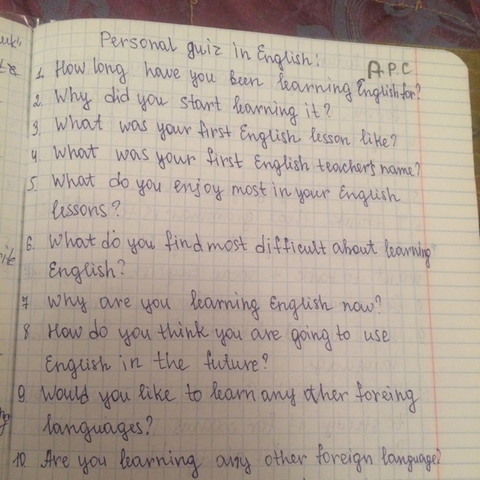 Personal quiz in English:
A P.C
1. How long have you been learning English for?
2. Why did you start learning it?
3. What was your first English lesson like?
4. What was your first English teacher's name?
5. What do you enjoy most in your English
lessons?
6. What do you find most difficult about learning
English?
7 Why are you learning English now?
8 How do you think you are going to use
English in the future?
9. Would you like to learn any other foreing
languages?
10. Are you learning any other foreign language?